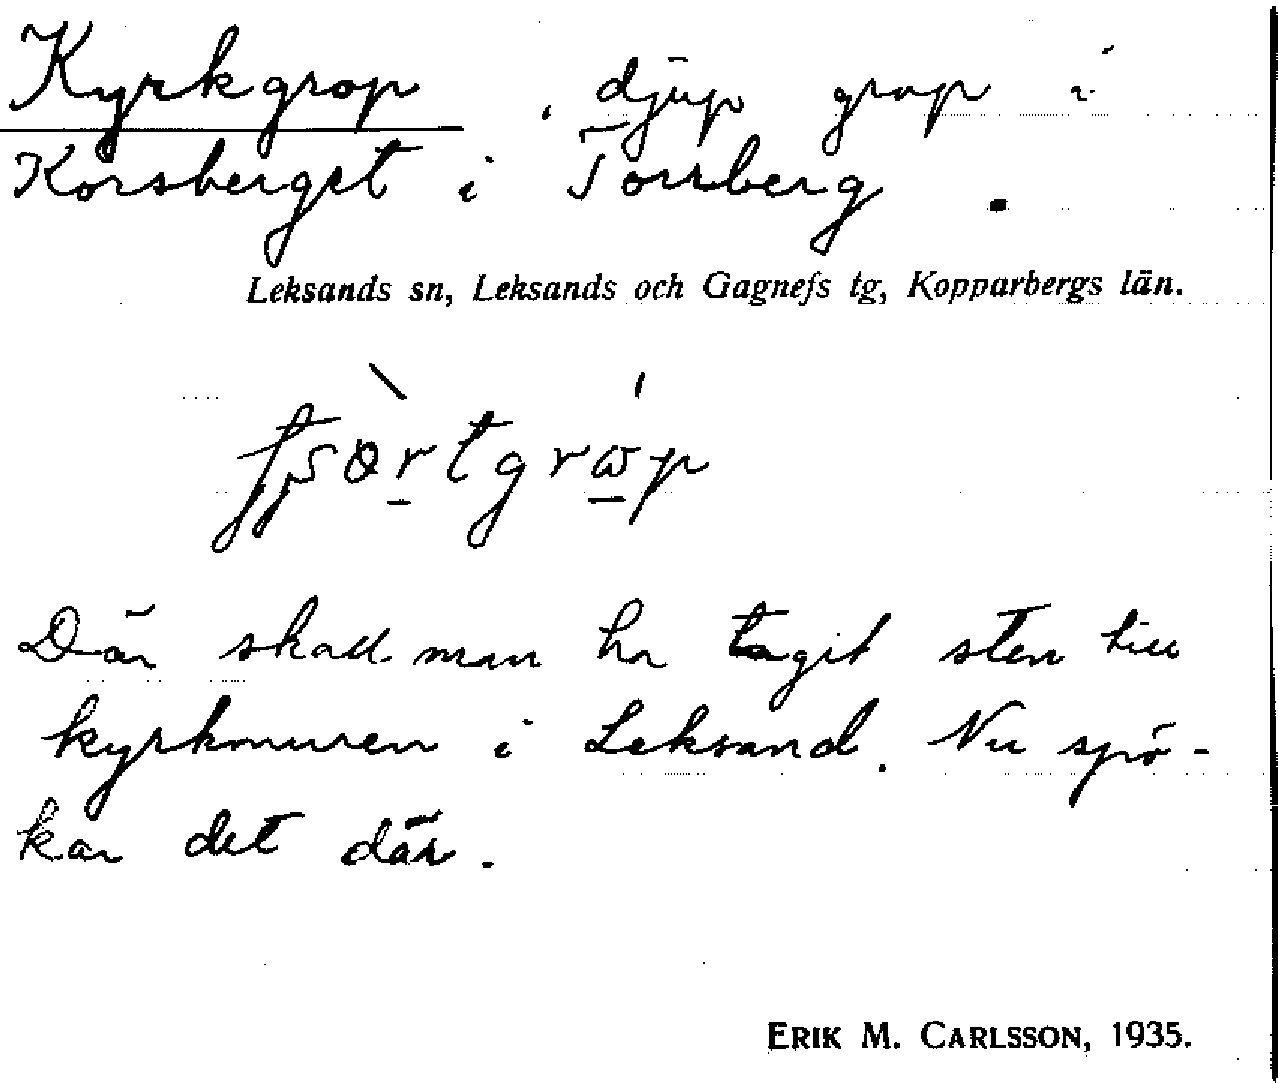 Kyrkgrop, djup grop i
Korsberget i Torrberg.
Leksands sn, Leksands och Gagnefs tg, Kopparbergs län.
Där skall man ha tagit sten till
kyrkmuren i Leksand. Nu spö-
kar det där.
ERIK M. CARLSSON, 1935.